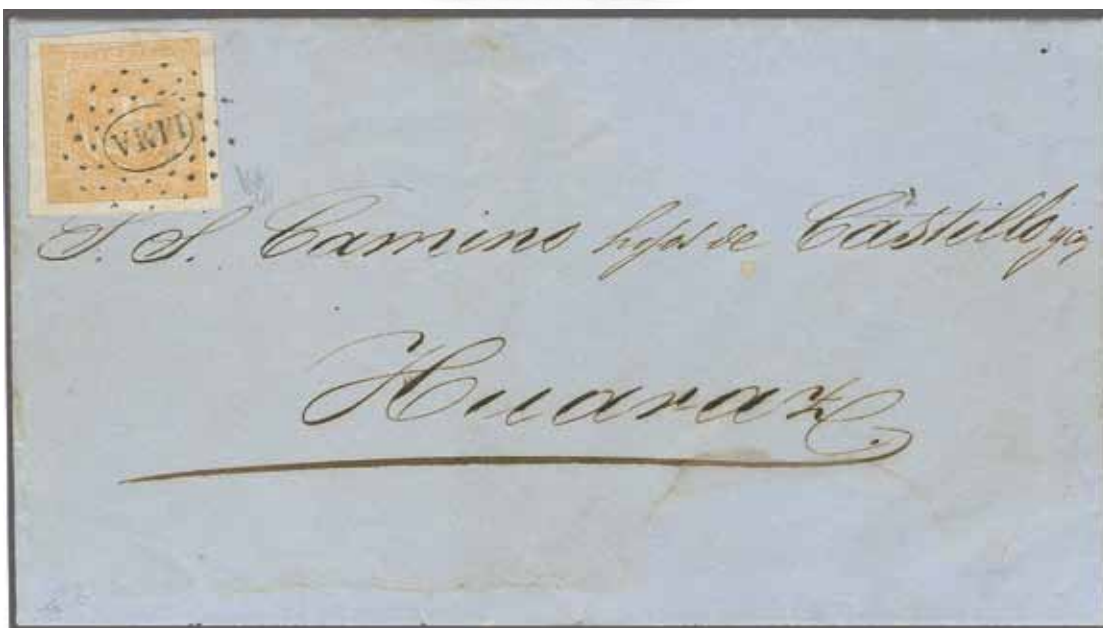 LIMA
S. S. Camino hijos de Castillo y Cia
Huaraz